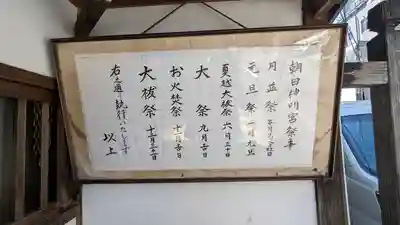 朝日神明宮祭事
月並祭 毎月一日
元旦祭 一月元旦
夏越大祓祭 六月三十日
大祭 九月吉日
お火焚祭 十一月吉日
大祓祭 十二月三十一日
右の通り執行いたします
以上